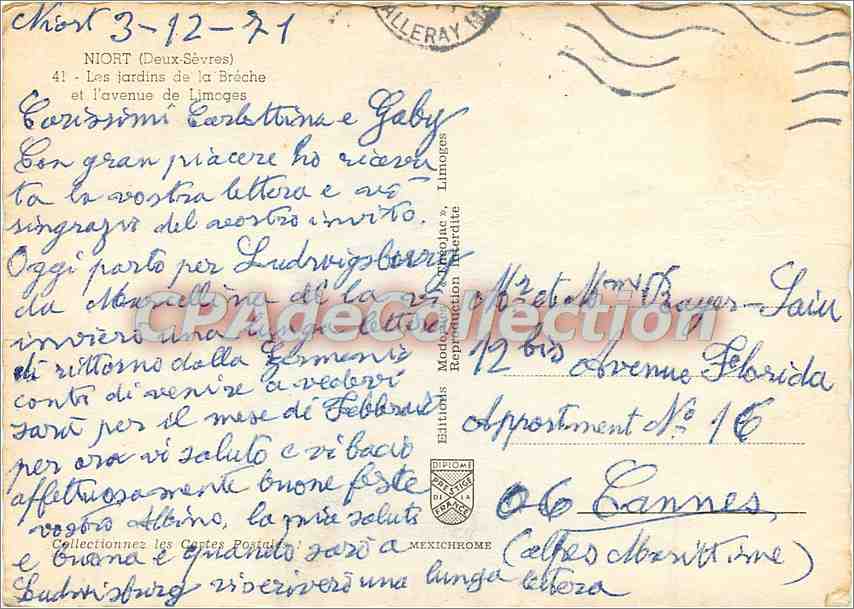 Niort 3-12-71
ALLERAY
NIORT (Deux-Sèvres)
41 - Les jardins de la Brèche
et l'avenue de Limoges
Carissimi Carlettina e Gaby
Con gran piacere ho ricevu
ta la vostra lettera e vi
ringrazio del vostro invito.
Oggi parto per Ludwigsburg
da Marcellina di la vi
inviero una lunga lettera
di rittorno dalla Germania
conti di venire a vedervi
sarà per il mese di Febbraio
per ora vi saluto e vi bacio
affettuosamente buone feste
vostro Albino, la mia salute
e buona e quando sarò a
Ludwisburg riscriverò una lunga lettera
Collectionnez les Cartes Postales !
MEXICHROME
Editions Modernes « Théojac », Limoges
Reproduction Interdite
DIPLOME
PRESTIGE
DE LA
FRANCE
Mr et Mme Boyer-Sain
12 bis Avenue Florida
Appartment No 16
06 Cannes
(alpes Marittime)
CPAdeCollection.com